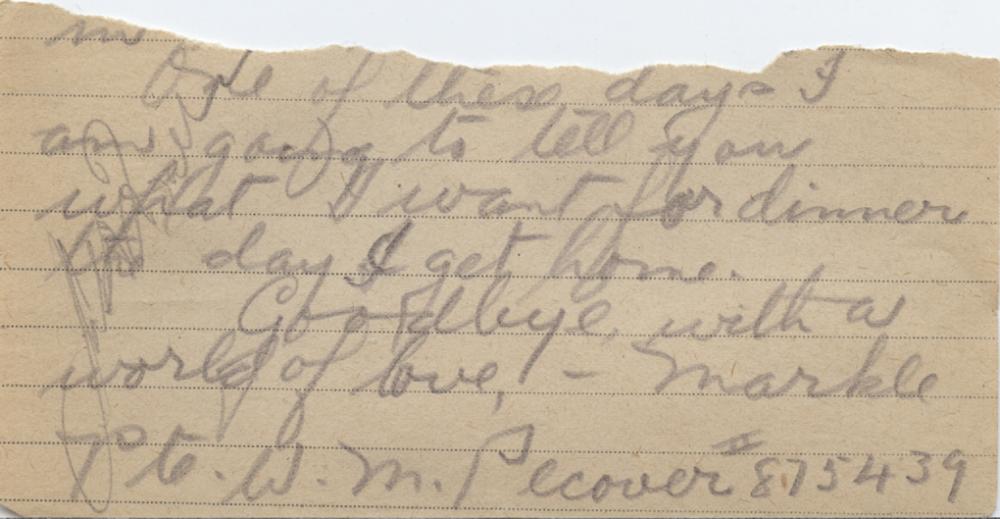 One of these days I
am going to tell you
what I want for dinner
1st day I get home.
Goodbye with a
world of love, - Markle
Pte. W. M. Pecover # 875439